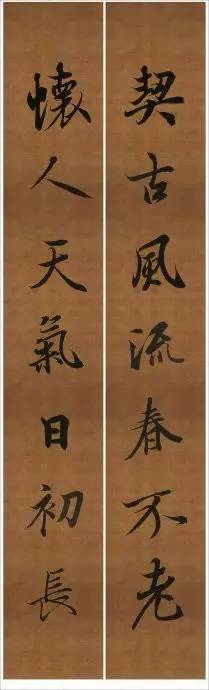 契古風流春不老
懷人天氣日初長